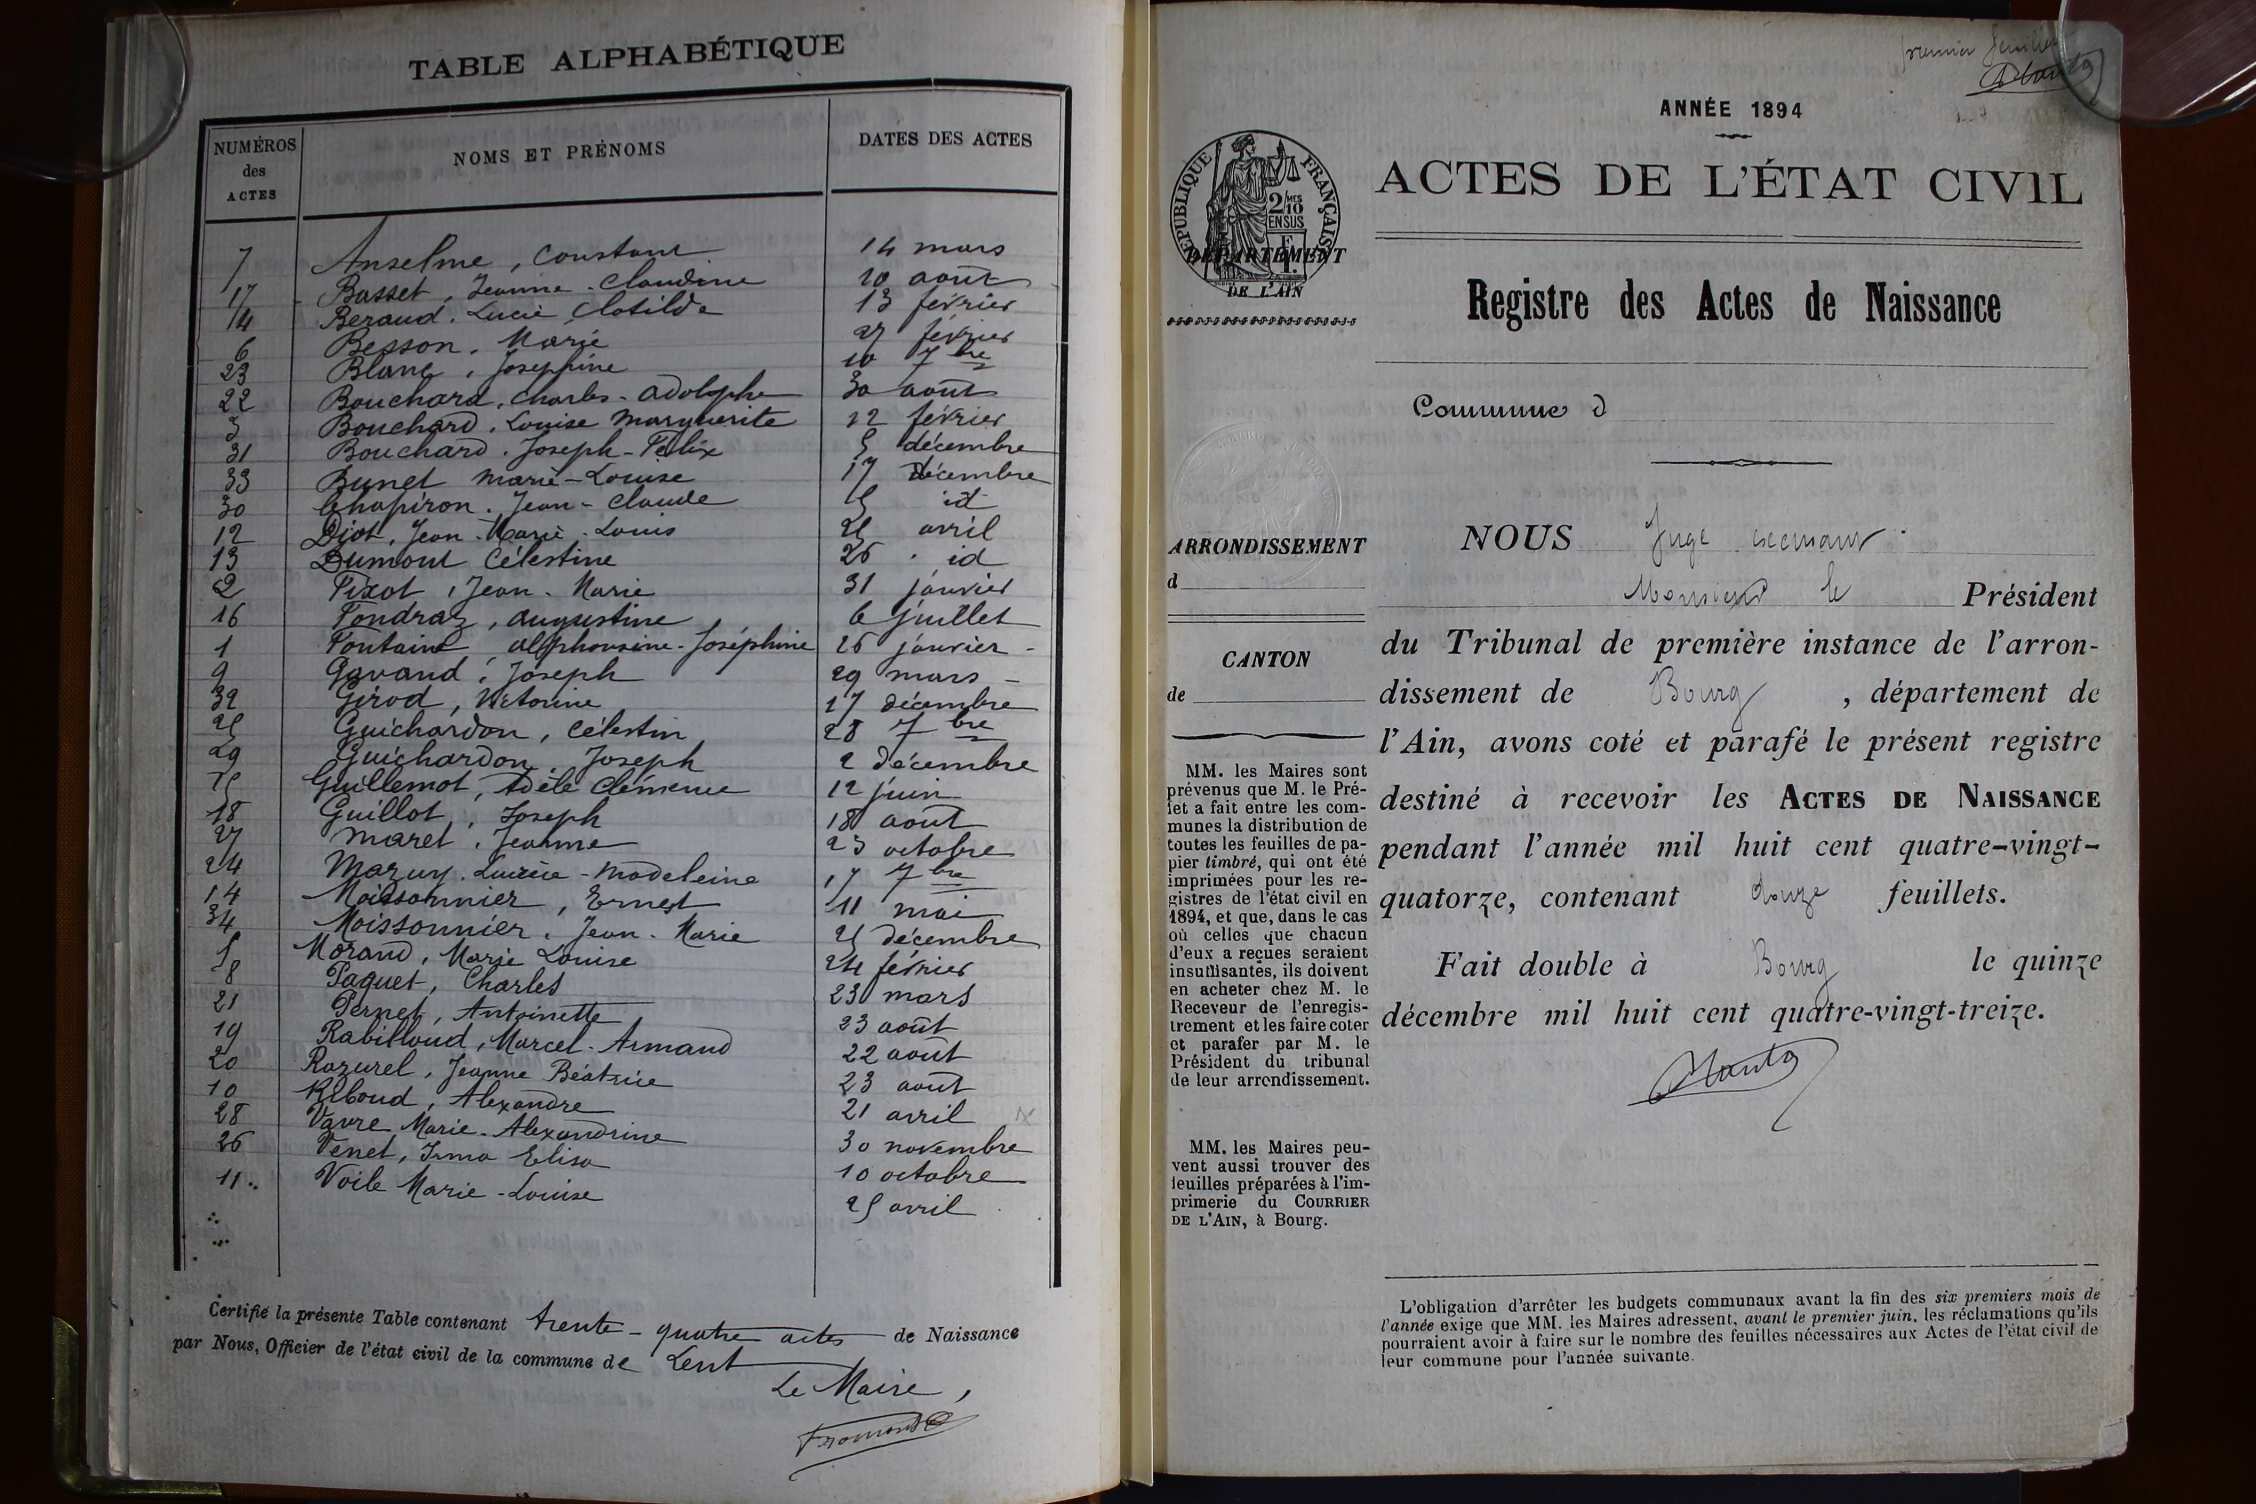 TABLE ALPHABÉTIQUE
NUMÉROS des ACTES NOMS ET PRÉNOMS DATES DES ACTES
7 Anselme, Constant 14 mars
17 Basset, Jeanne-Claudine 10 août
4 Beraud, Lucie Clotilde 13 février
6 Besson, Marie 27 février
23 Blanc, Joséphine 10 7bre
22 Bouchard, Charles-Adolphe 30 août
3 Bouchard, Louise Marguerite 12 février
31 Bouchard, Joseph-Félix 5 décembre
33 Bunel Marie-Louise 17 décembre
30 Chapiron, Jean-Claude 5 id
12 Diot, Jean-Marie-Louis 25 avril
13 Dumont Célestine 26 id
2 Fixot, Jean-Marie 31 janvier
16 Fondraz, Augustine 6 juillet
1 Fontaine, Alphonsine-Joséphine 26 janvier
9 Gavand, Joseph 29 mars
32 Girod, Victorine 17 décembre
25 Guichardon, Célestin 28 7bre
29 Guichardon, Joseph 2 décembre
15 Guillemot, Adèle Clémence 12 juin
18 Guillot, Joseph 18 août
27 Maret, Jeanne 23 octobre
24 Mazuy, Lucrèce-Madeleine 17 7bre
14 Moissonnier, Ernest 11 mai
34 Moissonnier, Jean-Marie 25 décembre
5 Morand, Marie Louise 24 février
8 Paquet, Charles 23 mars
21 Pernet, Antoinette 23 août
19 Rabilloud, Marcel-Armand 22 août
20 Razurel, Jeanne Béatrice 23 août
10 Riboud, Alexandre 21 avril
28 Vavre Marie-Alexandrine 30 novembre
26 Venet, Irma Elisa 10 octobre
11 Voile Marie-Louise 25 avril
Certifié la présente Table contenant trente-quatre actes de Naissance
par Nous, Officier de l'état civil de la commune de Lent
Le Maire,
premier feuillet
ANNÉE 1894
RÉPUBLIQUE FRANÇAISE
2/10MES
EN SUS
DÉPARTEMENT
DE L'AIN
ACTES DE L'ÉTAT CIVIL
Registre des Actes de Naissance
Commune d
ARRONDISSEMENT
d
CANTON
de
MM. les Maires sont
prévenus que M. le Pré-
fet a fait entre les com-
munes la distribution de
toutes les feuilles de pa-
pier timbré, qui ont été
imprimées pour les re-
gistres de l'état civil en
1894, et que, dans le cas
où celles que chacun
d'eux a reçues seraient
insuffisantes, ils doivent
en acheter chez M. le
Receveur de l'enregis-
trement et les faire coter
et parafer par M. le
Président du tribunal
de leur arrondissement.
MM. les Maires peu-
vent aussi trouver des
feuilles préparées à l'im-
primerie du COURRIER
DE L'AIN, à Bourg.
NOUS Juge
Monsieur le Président
du Tribunal de première instance de l'arron-
dissement de Bourg, département de
l'Ain, avons coté et parafé le présent registre
destiné à recevoir les ACTES DE NAISSANCE
pendant l'année mil huit cent quatre-vingt-
quatorze, contenant douze feuillets.
Fait double à Bourg le quinze
décembre mil huit cent quatre-vingt-treize.
L'obligation d'arrêter les budgets communaux avant la fin des six premiers mois de
l'année exige que MM. les Maires adressent, avant le premier juin, les réclamations qu'ils
pourraient avoir à faire sur le nombre des feuilles nécessaires aux Actes de l'état civil de
leur commune pour l'année suivante.